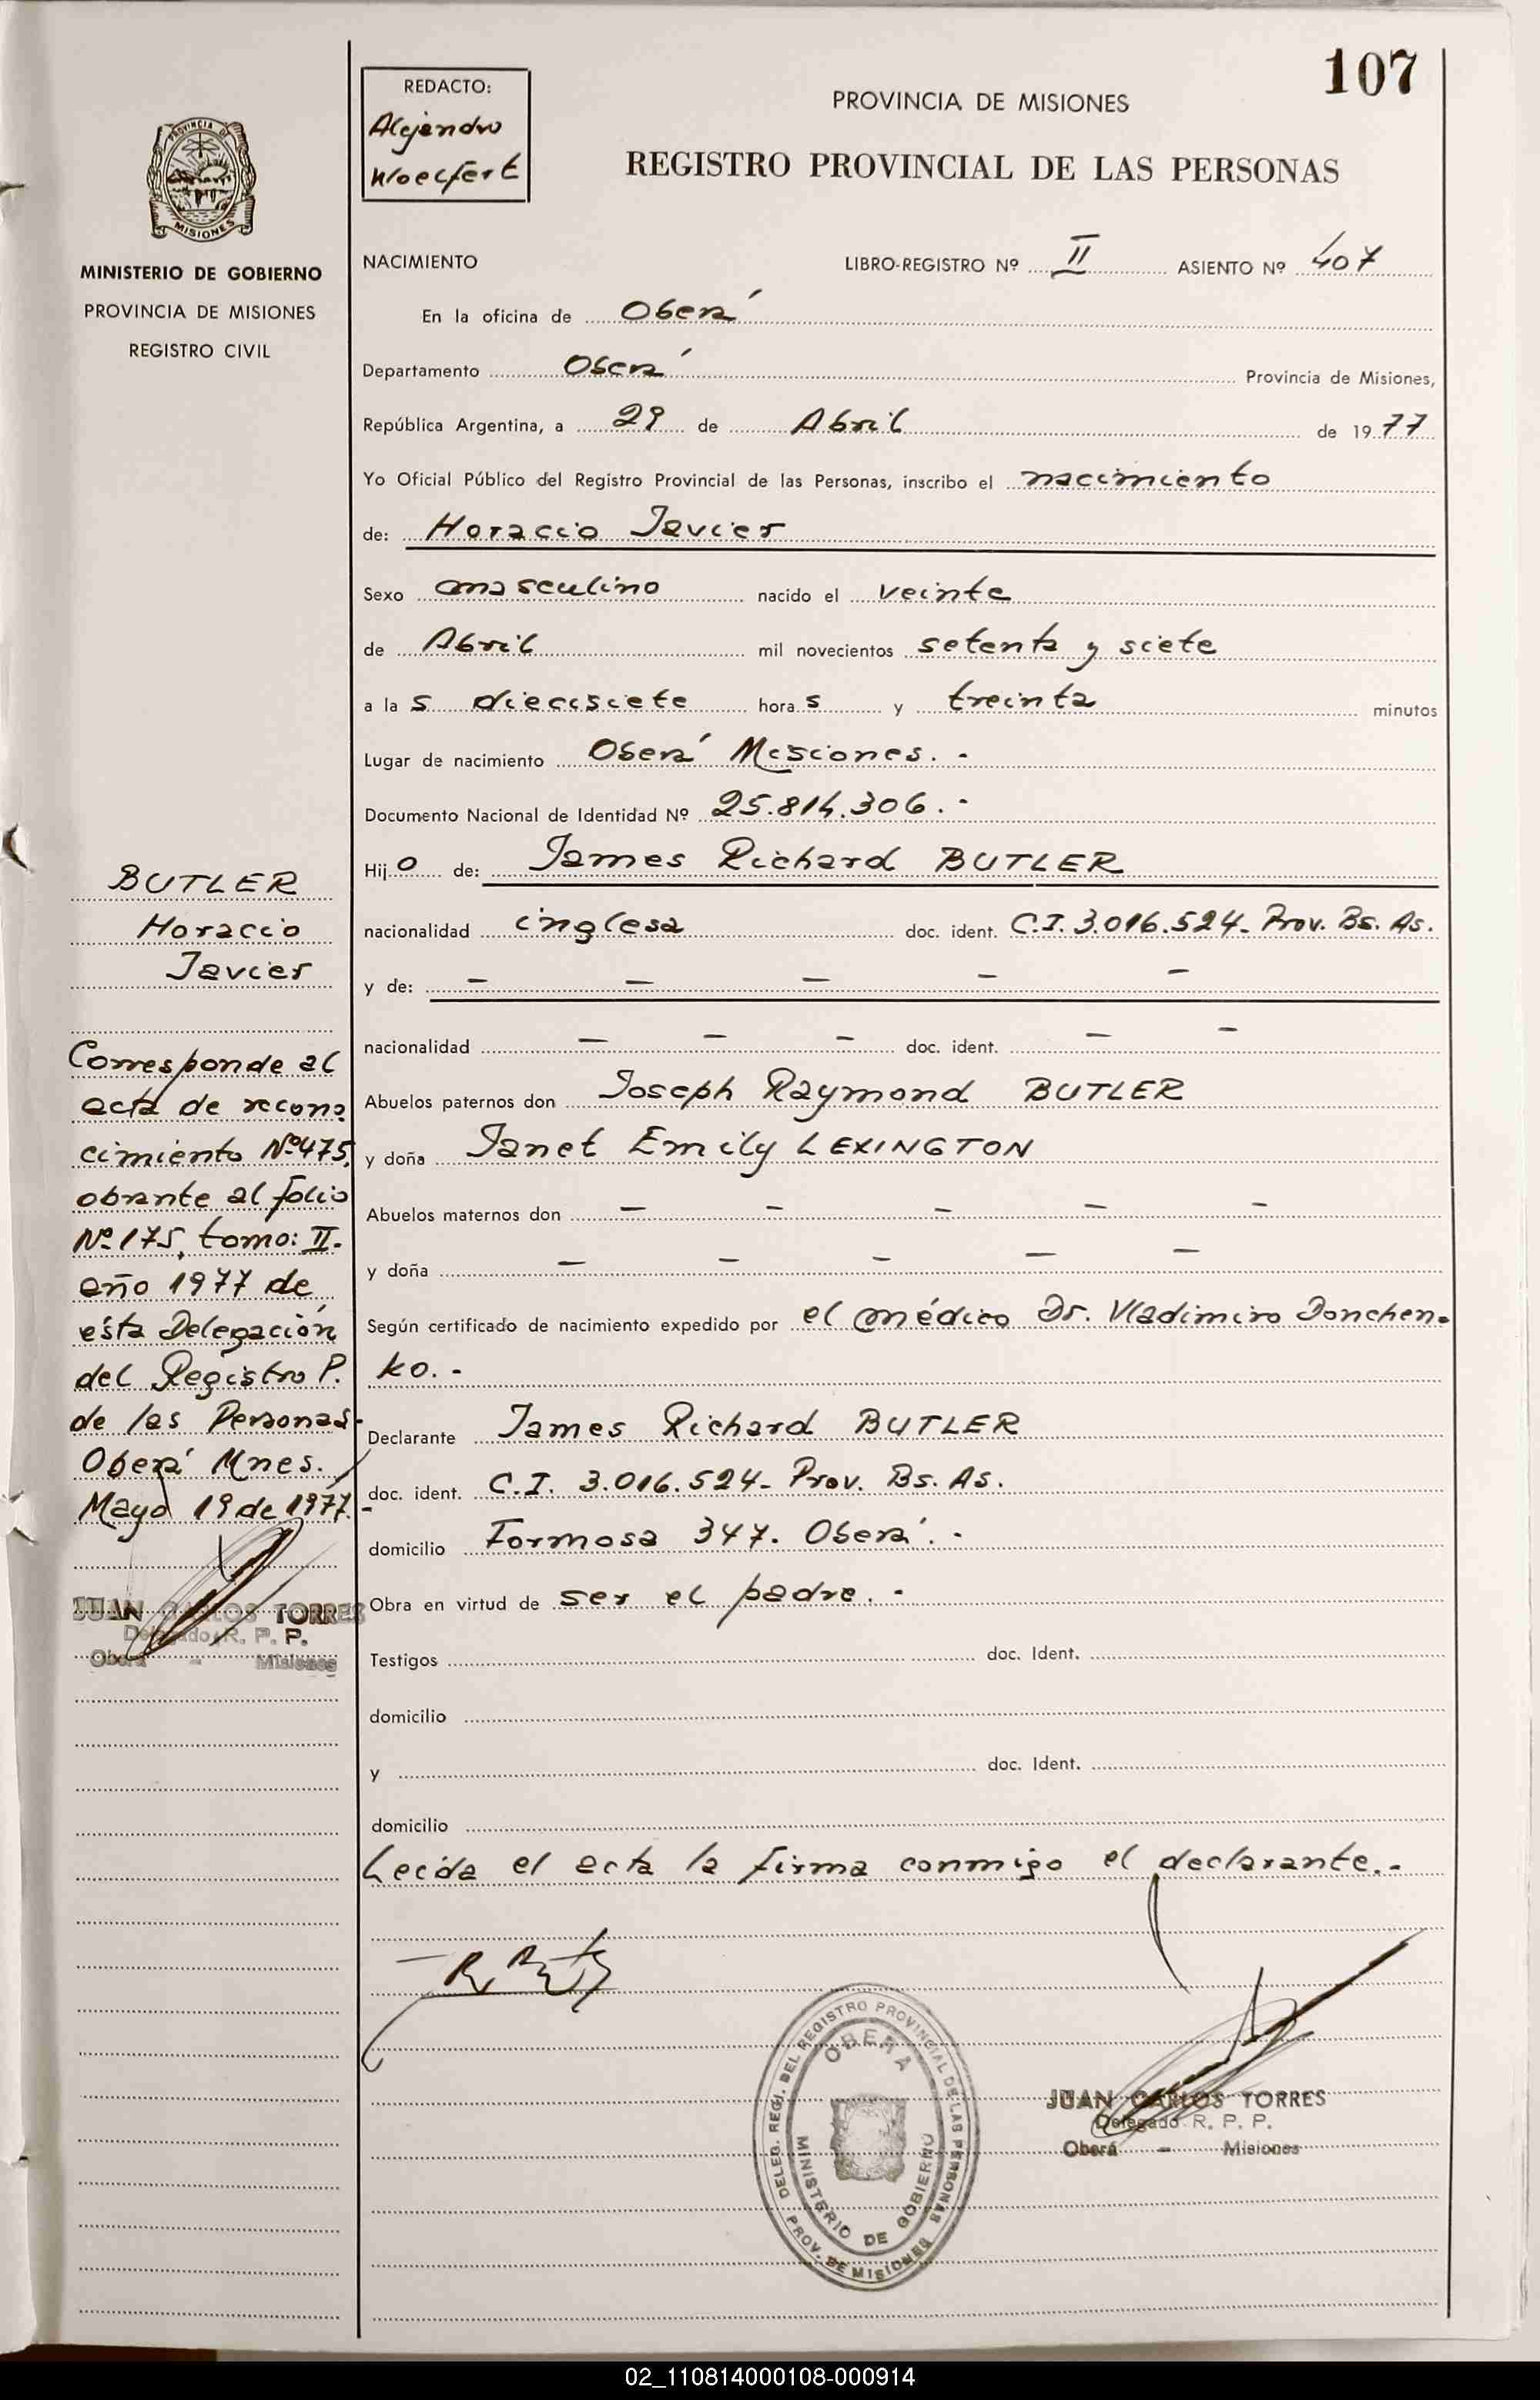 107
REDACTO:
Alejandro
PROVINCIA DE MISIONES
REGISTRO PROVINCIAL DE LAS PERSONAS
PROVINCIA DE
MISIONES
MINISTERIO DE GOBIERNO
PROVINCIA DE MISIONES
REGISTRO CIVIL
NACIMIENTO LIBRO-REGISTRO Nº II ASIENTO Nº 407
En la oficina de Oberá
Departamento Oberá Provincia de Misiones,
República Argentina, a 29 de Abril de 1977
Yo Oficial Público del Registro Provincial de las Personas, inscribo el nacimiento
de: Horacio Javier
Sexo masculino nacido el veinte
de Abril mil novecientos setenta y siete
a las diecisiete horas y treinta minutos
Lugar de nacimiento Oberá Misiones. -
Documento Nacional de Identidad Nº 25.814.306. -
Hijo de: James Richard BUTLER
nacionalidad inglesa doc. ident. C.I. 3.016.524- Prov. Bs. As.
y de: — — — — —
nacionalidad — — — doc. ident. — —
Abuelos paternos don Joseph Raymond BUTLER
y doña Janet Emily LEXINGTON
Abuelos maternos don — — — — —
y doña — — — — —
Según certificado de nacimiento expedido por el médico Dr. Vladimiro Donchen-
ko. -
Declarante James Richard BUTLER
doc. ident. C.I. 3.016.524- Prov. Bs. As.
domicilio Formosa 347. Oberá. -
Obra en virtud de ser el padre. -
Testigos doc. Ident.
domicilio
y doc. Ident.
domicilio
Leída el acta la firma conmigo el declarante. -
BUTLER
Horacio
Javier
Corresponde al
acta de recono
cimiento Nº 475,
obrante al folio
Nº 175, tomo: II.
año 1977 de
ésta Delegación
del Registro P.
de las Personas-
Oberá Mnes.
Mayo 19 de 1977.-
JUAN CARLOS TORRES
Delegado R. P. P.
Oberá - Misiones
DELEG. REGI. DEL REGISTRO PROVINCIAL DE LAS PERSONAS
PROV. DE MISIONES
OBERA
MINISTERIO DE GOBIERNO
JUAN CARLOS TORRES
Delegado R. P. P.
Oberá - Misiones
02_110814000108-000914